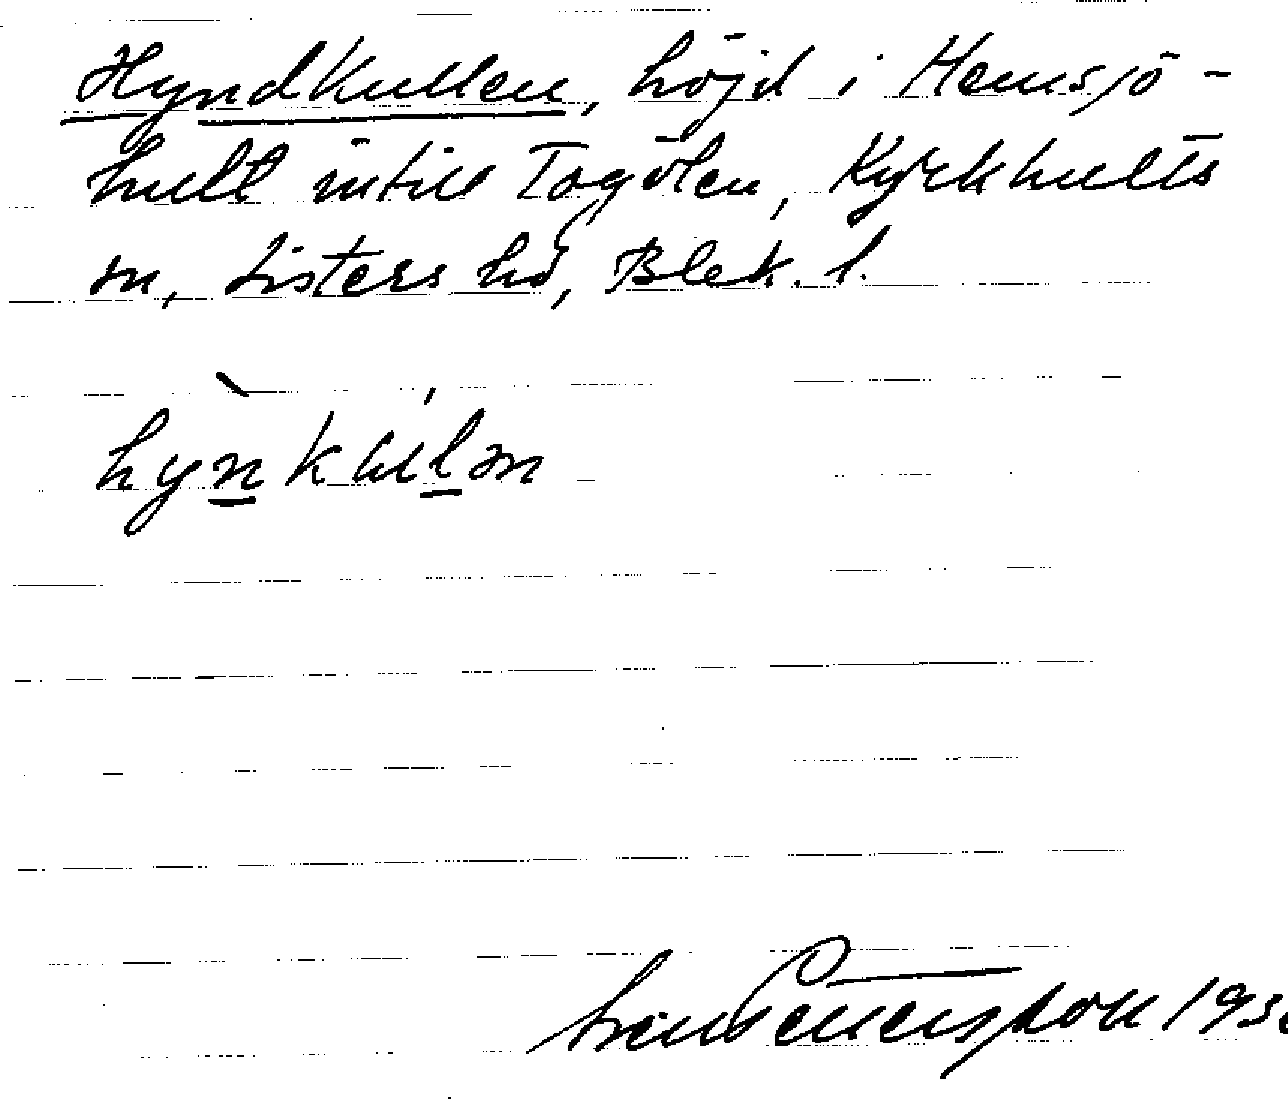 Hyndkullen, höjd i Hemsjö-
hult intill Togölen, Kyrkhults
sn, Listers hd, Blek. l.
hỳnkúlən
Pettersson